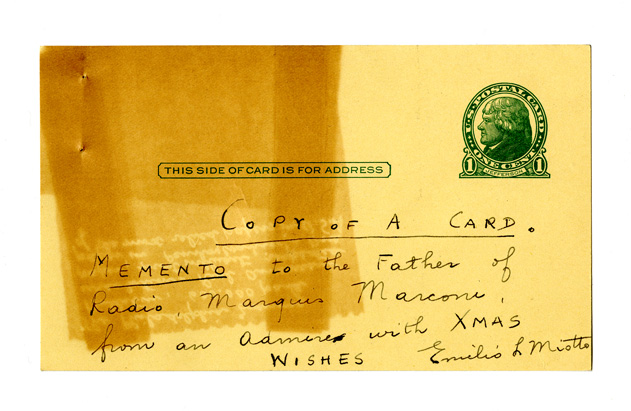 U.S. POSTAL CARD
ONE CENT
1 1
JEFFERSON
THIS SIDE OF CARD IS FOR ADDRESS
COPY OF A CARD.
MEMENTO to the Father of
Radio, Marquis Marconi,
from an Admirer with XMAS
WISHES Emilio L Miotto